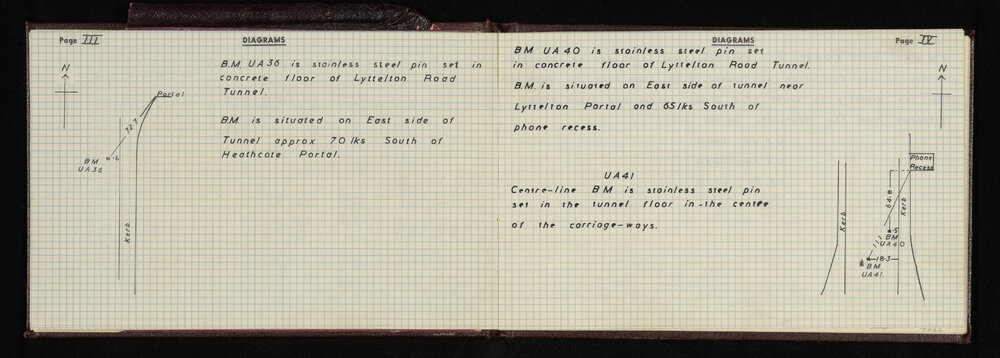 Page III
DIAGRAMS
N
Portal
72.7
.6
BM
UA36
Kerb
B.M. UA36 is stainless steel pin set in
concrete floor of Lyttelton Road
Tunnel.
B.M. is situated on East side of
Tunnel approx 70 lks South of
Heathcote Portal.
DIAGRAMS
Page IV
BM UA40 is stainless steel pin set
in concrete floor of Lyttelton Road Tunnel.
B.M. is situated on East side of tunnel near
Lyttelton Portal and 65lks South of
phone recess.
UA41
Centre-line BM is stainless steel pin
set in the tunnel floor in the centre
of the carriage-ways.
N
Phone
Recess
Kerb
64.8
Kerb
.5
BM
UA40
11.1
18.3
BM
UA41